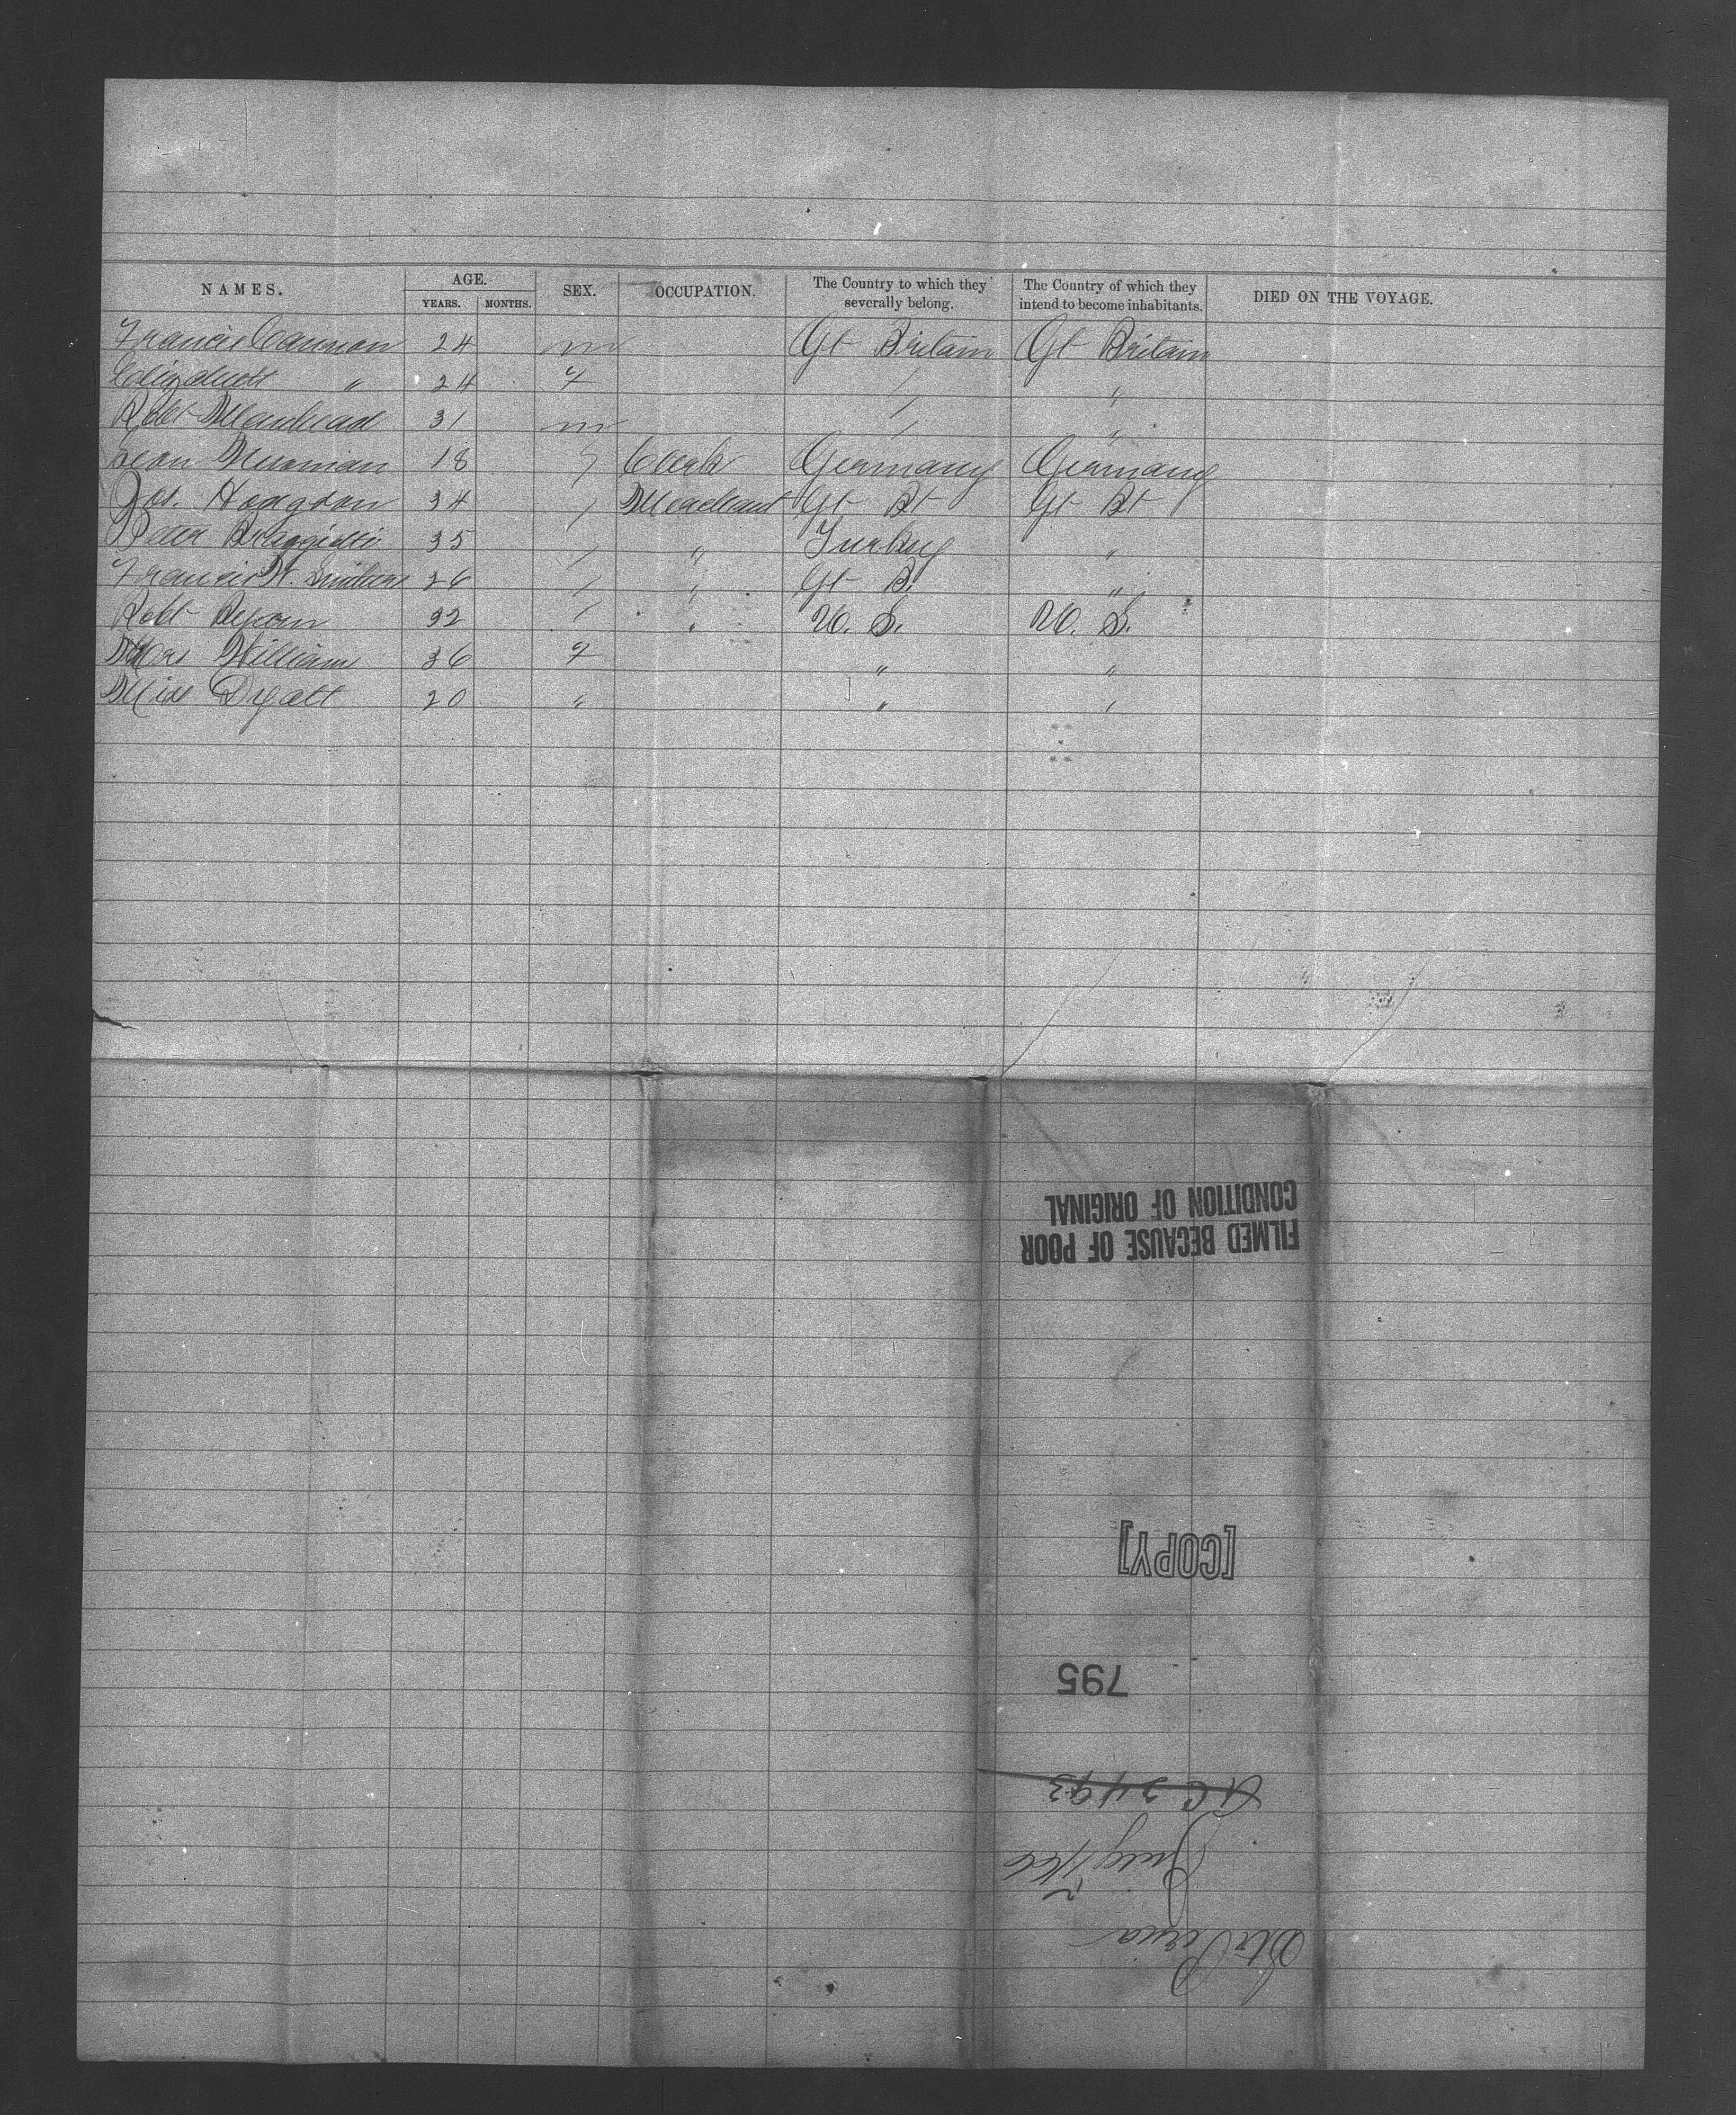 NAMES. AGE. YEARS. MONTHS. SEX. OCCUPATION. The Country to which they severally belong. The Country of which they intend to become inhabitants. DIED ON THE VOYAGE.
Francis Cannon 24 m Gt Britain Gt Britain
Elizabeth " 24 f / "
Robt 31 m / "
Leon Neuman 18 / Clerk Germany Germany
Jos. Hodgson 34 / Merchant Gt Bt Gt Bt
Peter 35 / " Turkey "
Francis H. 26 / " Gt B. "
Robt 32 / " U. S. U. S.
Mrs William 36 f " "
Miss Dyatt 20 " " "
FILMED BECAUSE OF POOR
CONDITION OF ORIGINAL
[COPY]
795
2493
July 7/66
Str Persia